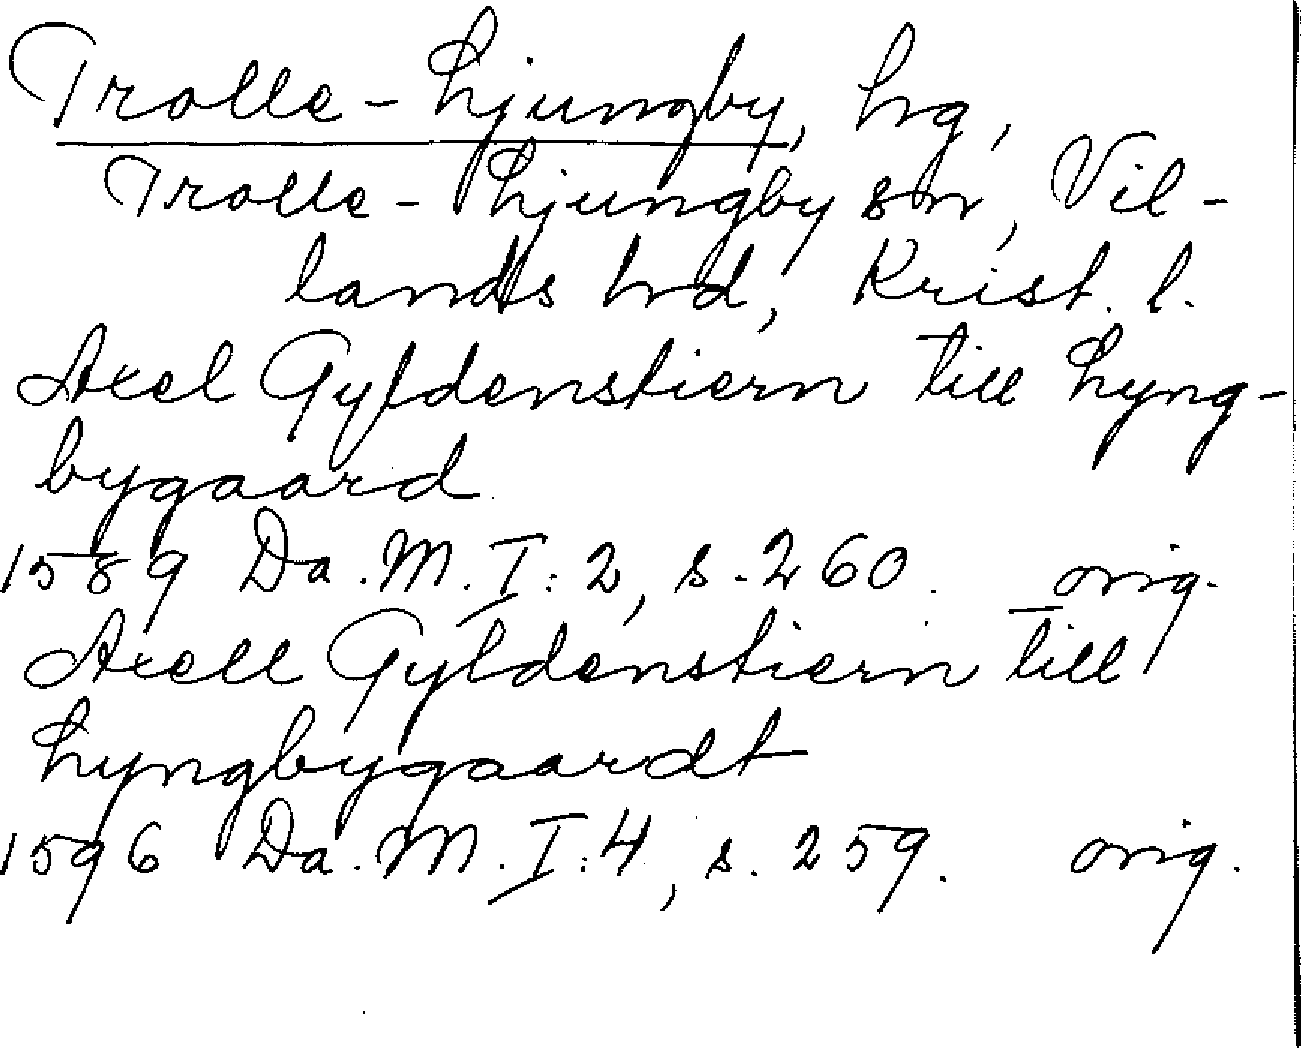 Trolle-Ljungby, hg,
Trolle-Ljungby sn, Vil-
lands hd, Krist. l.
Axel Gyldenstiern till Lyng-
bygaard
1589 Da. M. I: 2, s. 260. orig.
Axell Gyldenstiern till
Lyngbygaardt
1596 Da. M. I: 4, s. 259. orig.